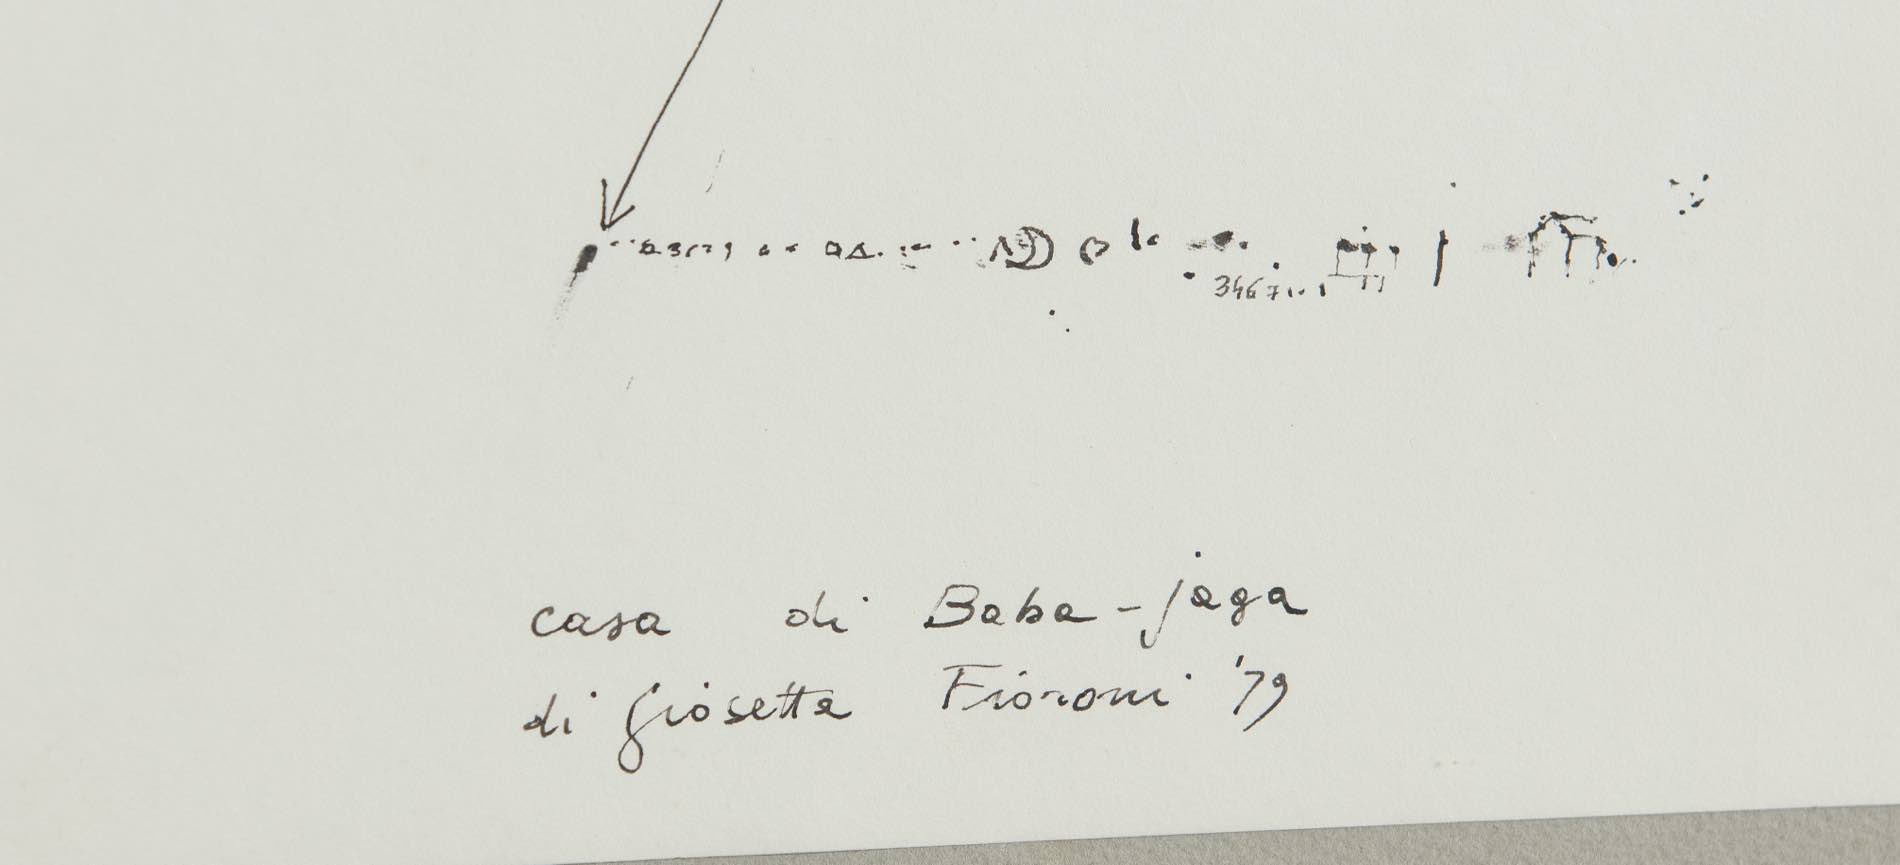 3467
casa di Baba-jaga
di Giosetta Fioroni '79